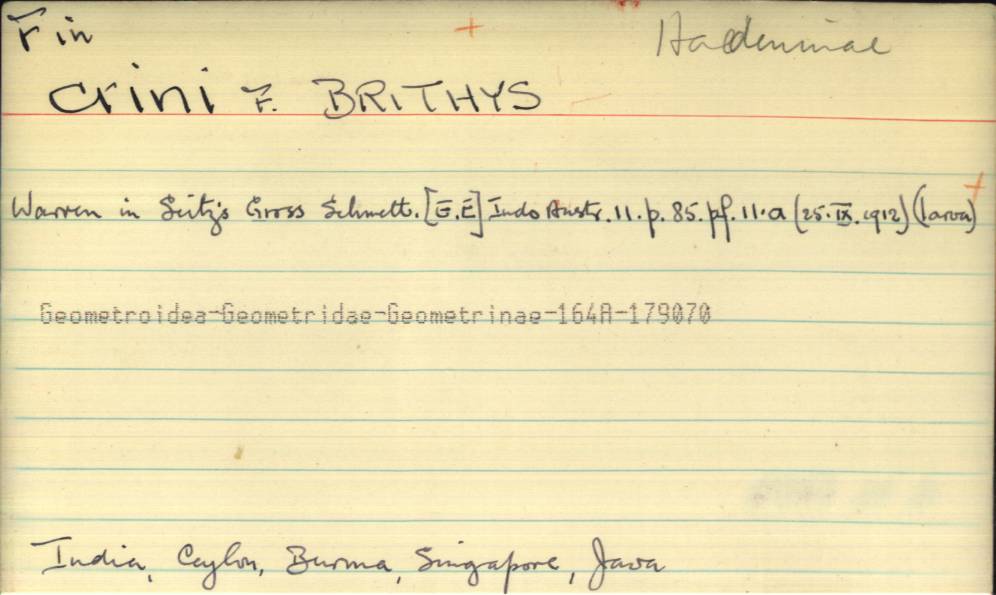 F in
Hadeninae
crini F. BRITHYS
Warren in Seitz's Gross Schmett. [E.E] Indo Austr. 11. p. 85. pf. 11.a (25.IX.1912) (larva)
Geometroidea-Geometridae-Geometrinae-164A-179070
India, Ceylon, Burma, Singapore, Java